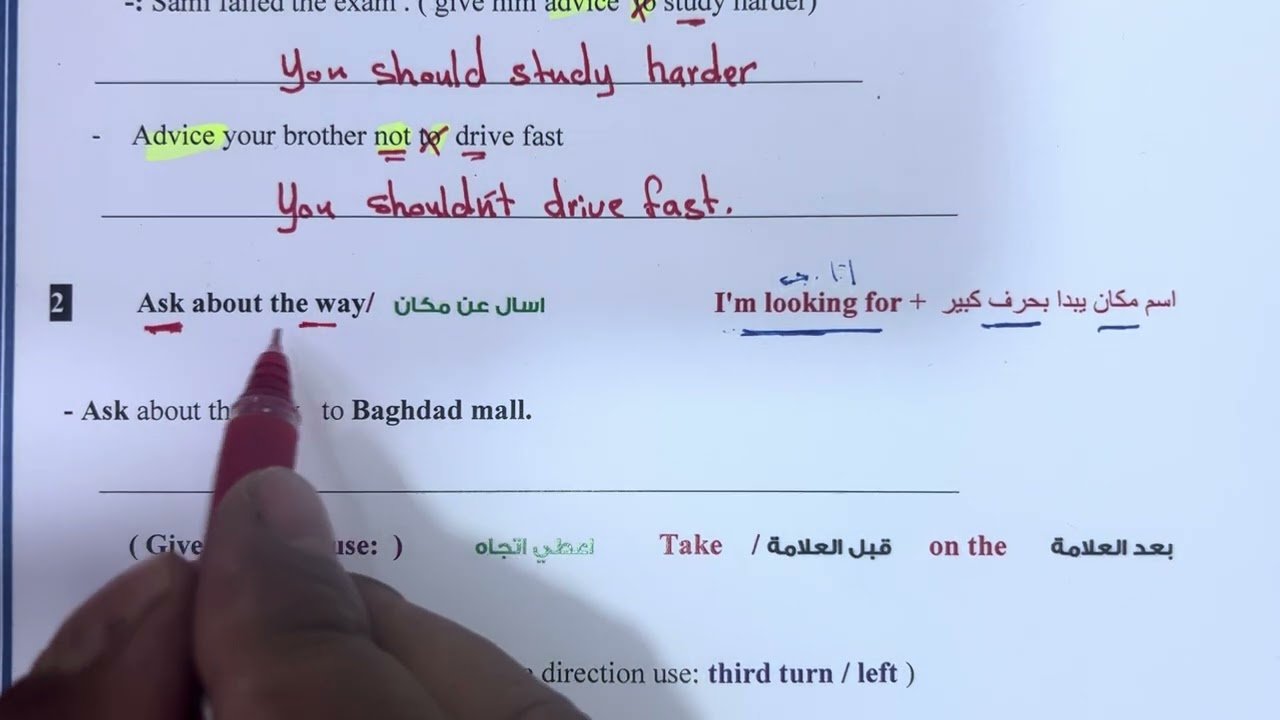 -: Sami failed the exam . ( give him advice to study harder)
You should study harder
- Advice your brother not to drive fast
You shouldn't drive fast.
2 Ask about the way/ اسال عن مكان I'm looking for + اسم مكان يبدا بحرف كبير
- Ask about th to Baghdad mall.
( Give use: ) اعطي اتجاه Take / قبل العلامة on the بعد العلامة
direction use: third turn / left )